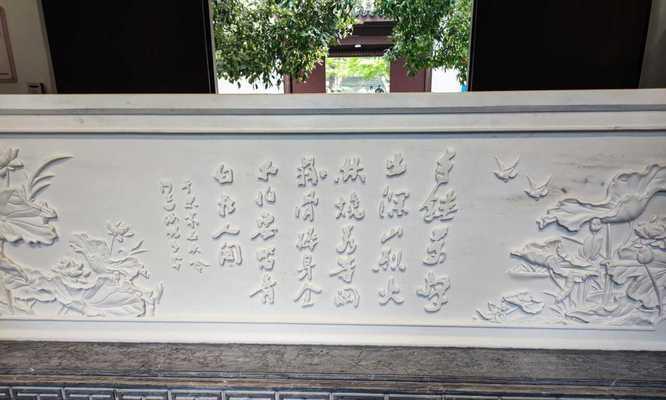 千锤万凿
出深山烈火
焚燒若等闲
粉骨碎身全
不怕要留青
白在人间